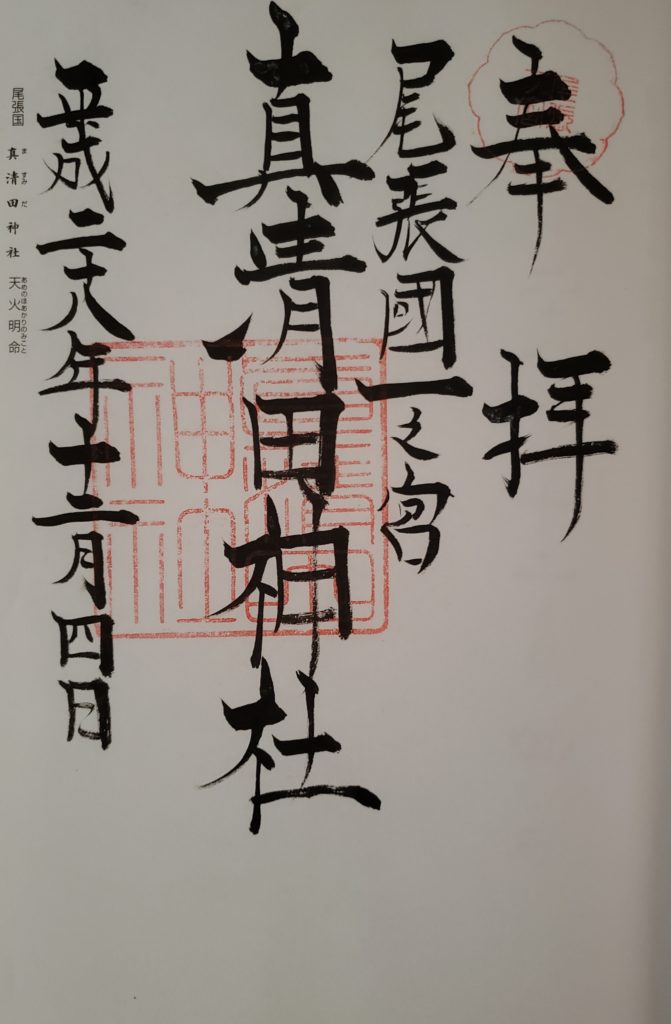 奉拝
尾張國一之宮
真清田神社
平成二十八年十二月四日
尾張国 真清田神社 天火明命
ま すみ だ
あめのほあかりのみこと